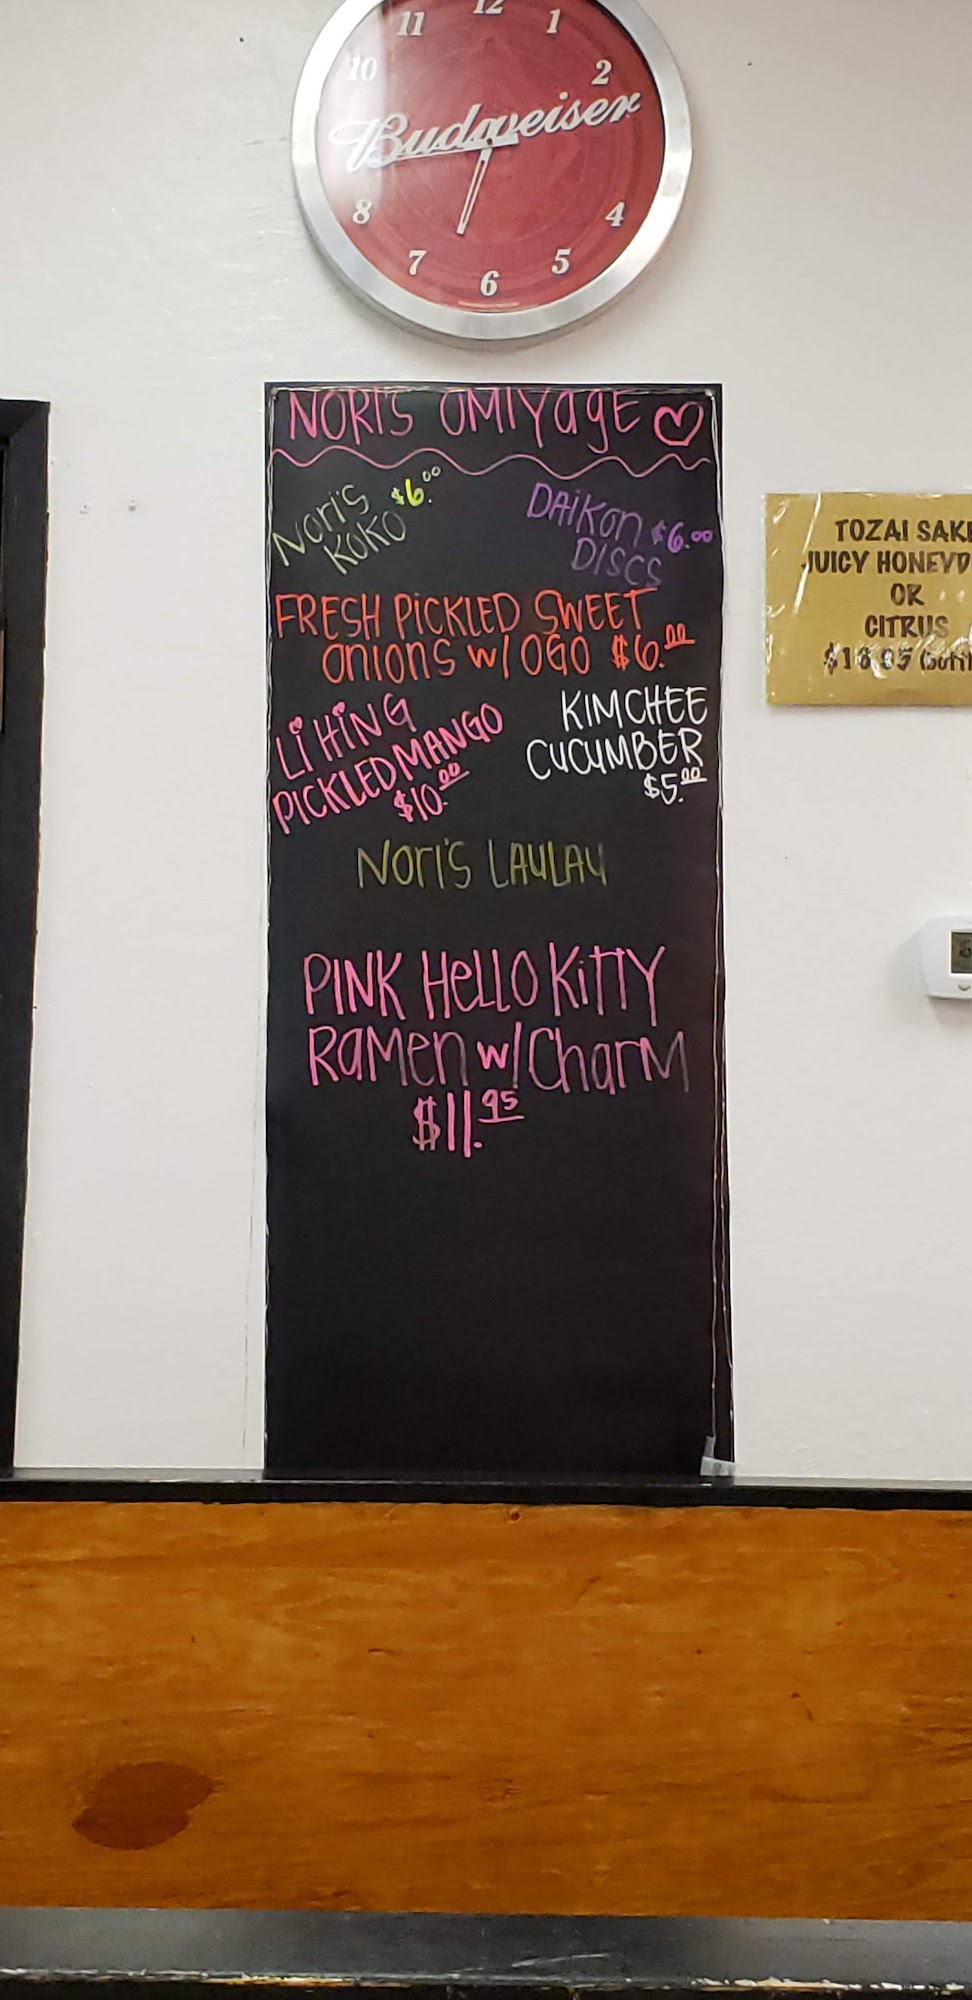 12
11 1
10 2
Budweiser
8 4
7 5
6
NORI'S OMIYAGE
NORI'S $6.00
KOKO
DAIKON $6.00
DISCS
FRESH PICKLED SWEET
ONIONS W/ OGO $6.00
LI HING
PICKLED MANGO
$10.00
KIMCHEE
CUCUMBER
$5.00
NORI'S LAULAU
PINK HELLO KITTY
RAMEN W/ CHARM
$11.95
TOZAI
JUICY
OR
CITRUS